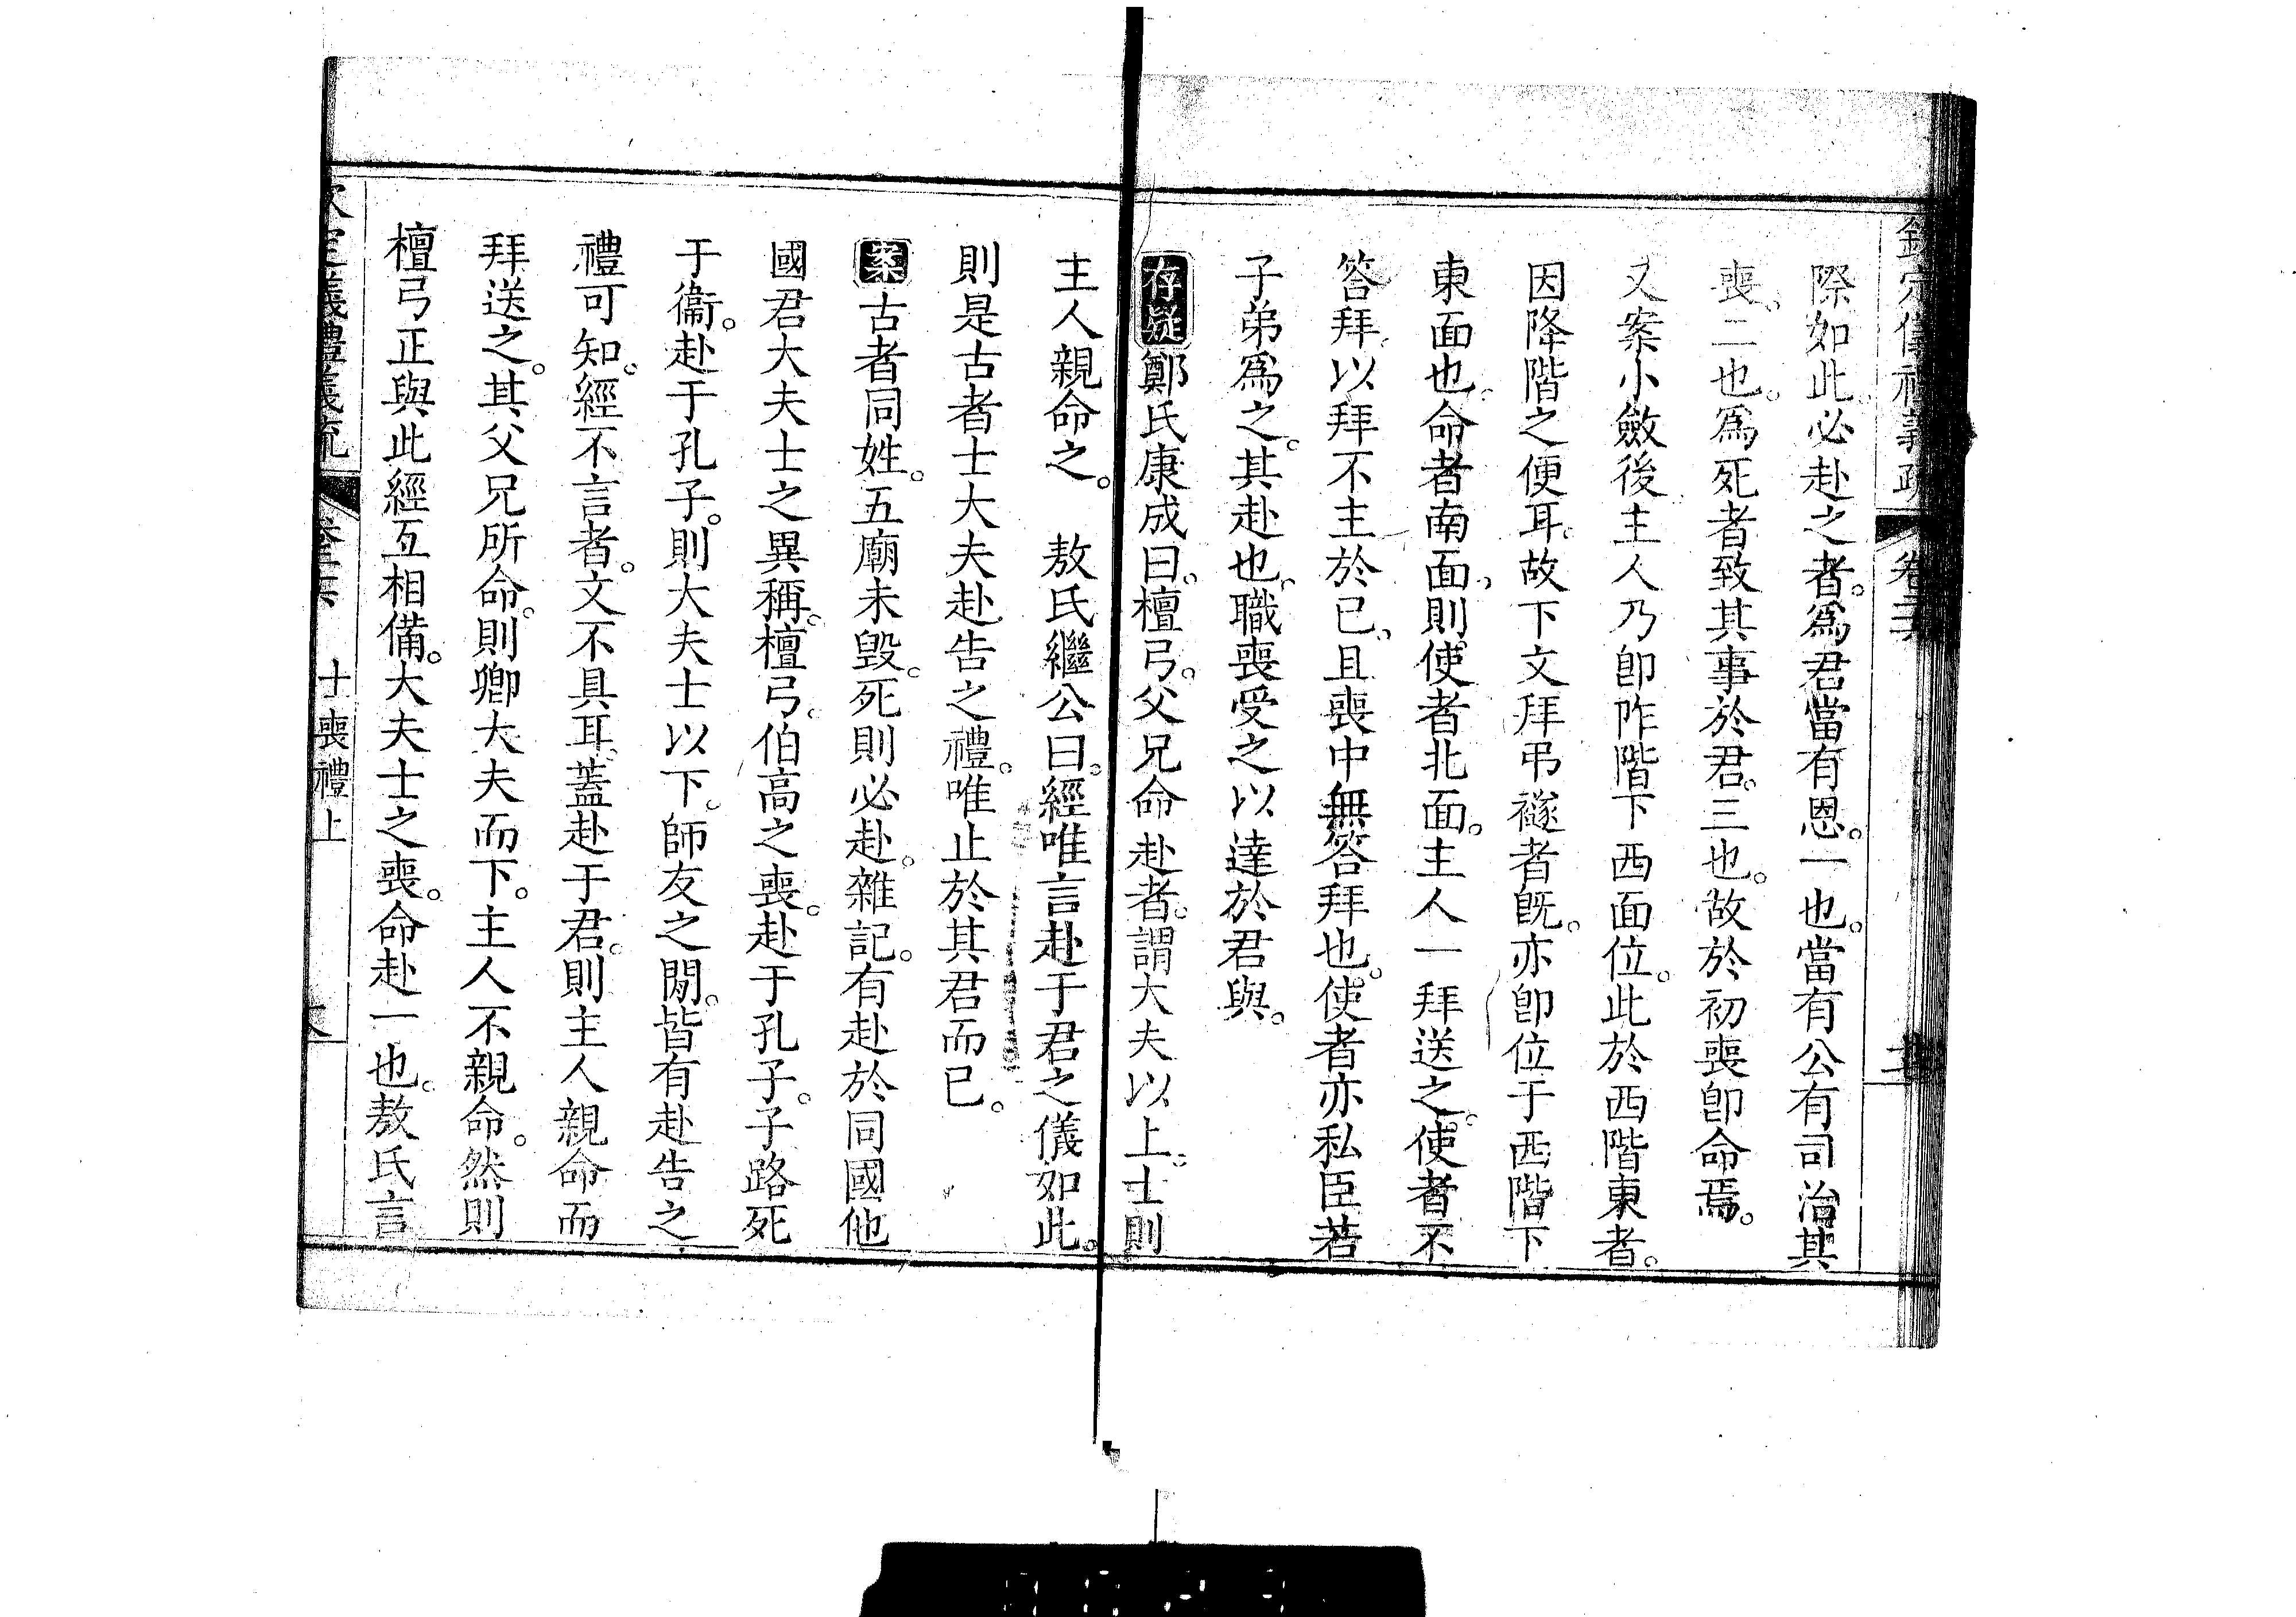 欽定儀禮義疏 卷二十六
際如此。必赴之者。爲君當有恩。一也。當有公有司治其
喪。二也。爲死者致其事於君。三也。故於初喪卽命焉。
又案小斂後主人乃卽阼階下西面位。此於西階東者。
因降階之便耳。故下文拜弔襚者旣。亦卽位于西階下
東面也。命者南面。則使者北面。主人一拜送之。使者不
答拜。以拜不主於已。且喪中無答拜也。使者亦私臣若
子弟爲之。其赴也。職喪受之以達於君與。
存疑鄭氏康成曰。檀弓。父兄命赴者。謂大夫以上。士則
主人親命之。 敖氏繼公曰。經唯言赴于君之儀如此。
則是古者士大夫赴告之禮。唯止於其君而已。
案古者同姓。五廟未毁。死則必赴。雜記。有赴於同國他
國君大夫士之異稱。檀弓。伯高之喪。赴于孔子。子路死
于衞。赴于孔子。則大夫士以下。師友之閒。皆有赴告之
禮可知。經不言者。文不具耳。蓋赴于君。則主人親命而
拜送之。其父兄所命。則卿大夫而下。主人不親命。然則
檀弓正與此經互相備。大夫士之喪。命赴一也。敖氏言
定義禮義疏 士喪禮上